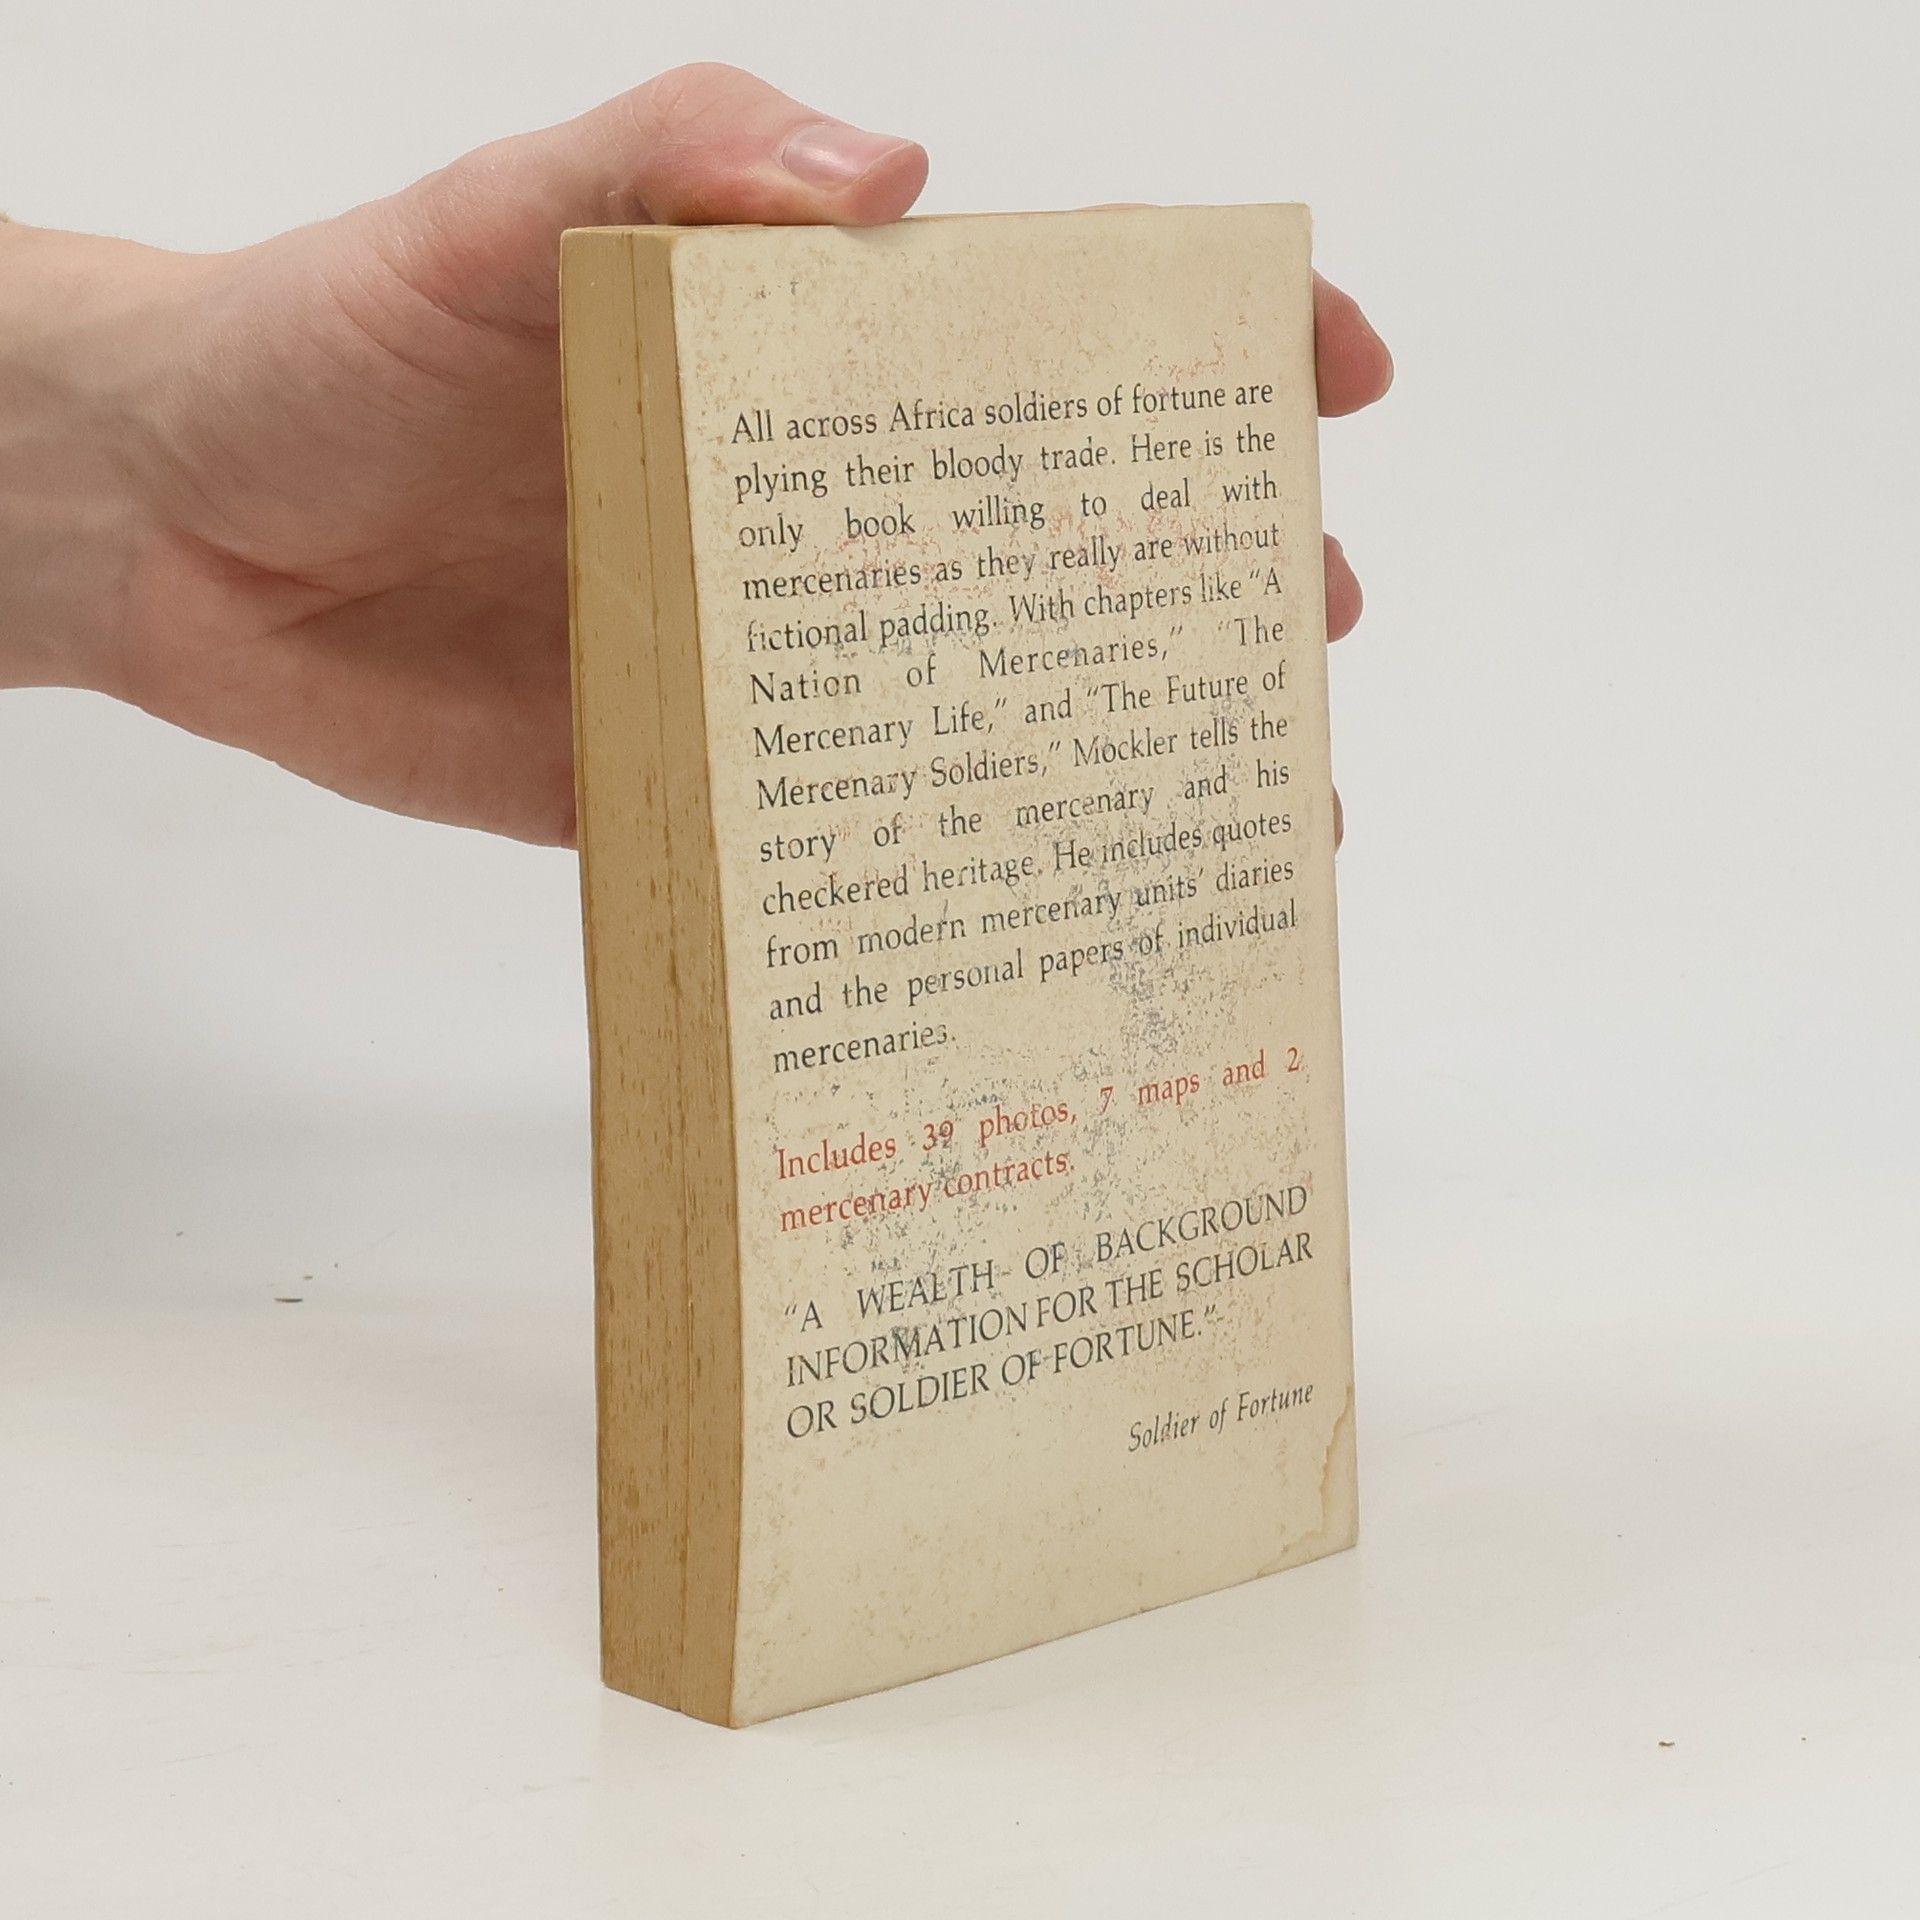 All across Africa soldiers of fortune are
plying their bloody trade. Here is the
only book willing to deal with
mercenaries as they really are without
fictional padding. With chapters like “A
Nation of Mercenaries,” “The
Mercenary Life,” and “The Future of
Mercenary Soldiers,” Mockler tells the
story of the mercenary and his
checkered heritage. He includes quotes
from modern mercenary units’ diaries
and the personal papers of individual
mercenaries.
Includes 39 photos, 7 maps and 2
mercenary contracts.
“A WEALTH OF BACKGROUND
INFORMATION FOR THE SCHOLAR
OR SOLDIER OF FORTUNE.”
Soldier of Fortune